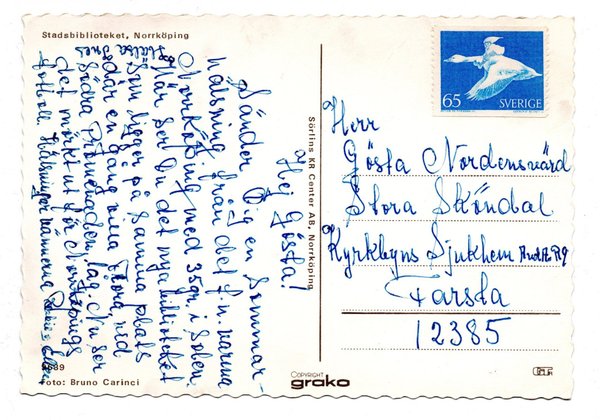 Stadsbiblioteket, Norrköping
Hej Gösta!
Sänder Dig en Sommar-
hälsning från det f.n. varma
Norrköping med 35gr. i Solen.
Här ser Du det nya biblioteket
Som ligger på Samma plats
där en gång vina
Södra Promenaden låg. Nu ser
det mörkt ut för Norrköpings
fotboll. Hälsningar
Hälsa
9639
Foto: Bruno Carinci
Sörlins KR Center AB, Norrköping
COPYRIGHT
grako
65 SVERIGE
Herr
Gösta Nordensvärd
Stora Sköndal
Kyrkbyns Sjukhem
Farsta
12385